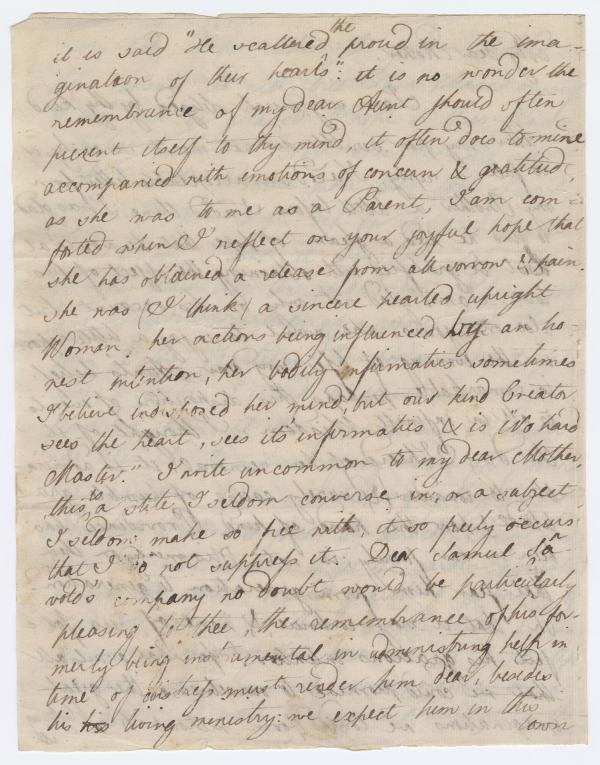 it is said "He scattered the proud in the ima-
gination of their hearts": it is no wonder the
remembrance of my dear Aunt should often
present itself to thy mind, it often does to mine
accompanied with emotions of concern & gratitude,
as she was to me as a Parent, I am com-
forted when I reflect on your joyful hope that
she has obtained a release from all sorrow & pain.
she was (I think) a sincere hearted upright
Woman, her actions being influenced by an ho-
nest intention, her bodily infirmaties sometimes
I believe indisposed her mind, but our kind Creator
sees the heart, sees its infirmaties & is "No hard
Master." I write uncommon to my dear Mother,
this is a stile I seldom converse in, or a subject
I seldom make so free with, it so freely occurs
that I do not suppress it. Dear Samuel
company no doubt would be particularly
pleasing to thee, the remembrance of his for-
merly being instrumental in administring help in
time of distress must render him dear, besides
his living ministry: we expect him in this
town